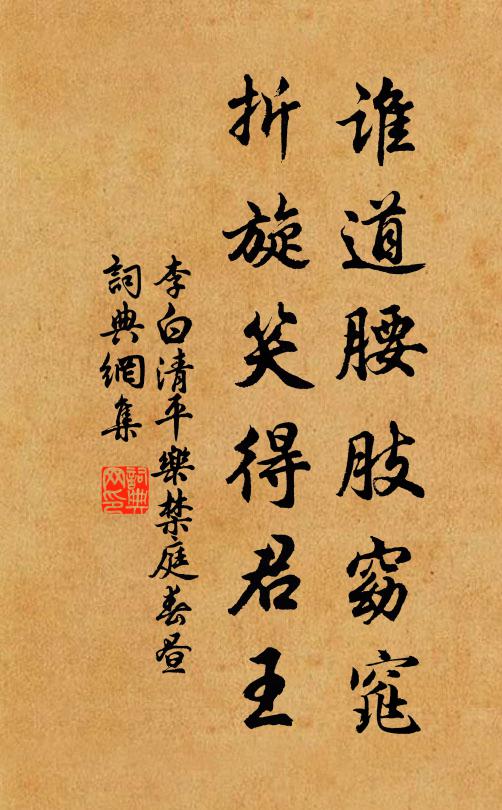 谁道腰肢窈窕
折旋笑得君王
李白清平樂禁庭春晝
詞典網集
詞典网印